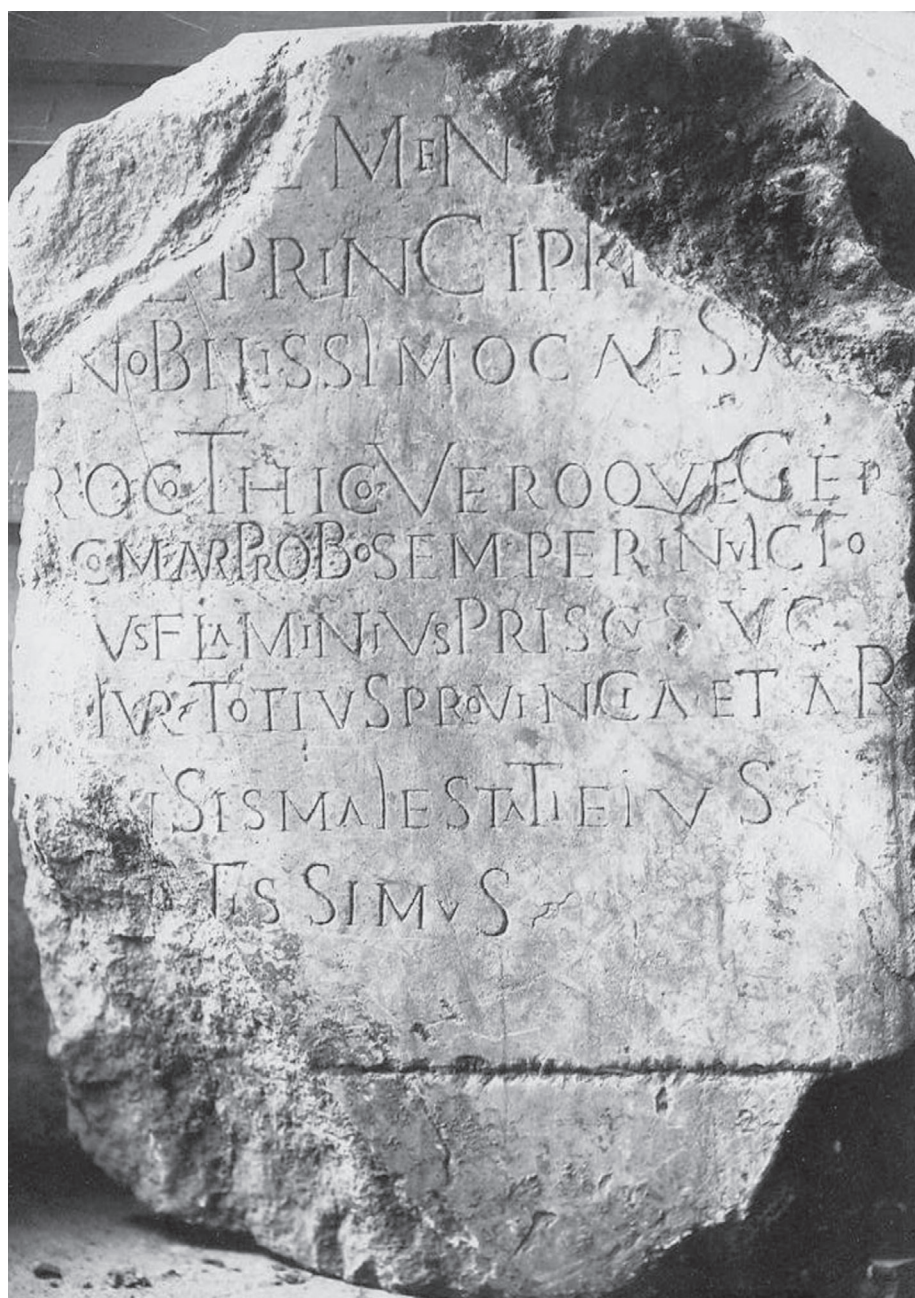 MEN
PRINCIPI
NOBILISSIMO CAESA
GOTHICO VEROQVE GER
CO M AVR PROBO SEMPER INVICTO
VS FLAMINIVS PRISCVS V C
IVR TOTIVS PROVINCIAE ET AR
SIS MAIESTATI EIVS
TISSIMVS